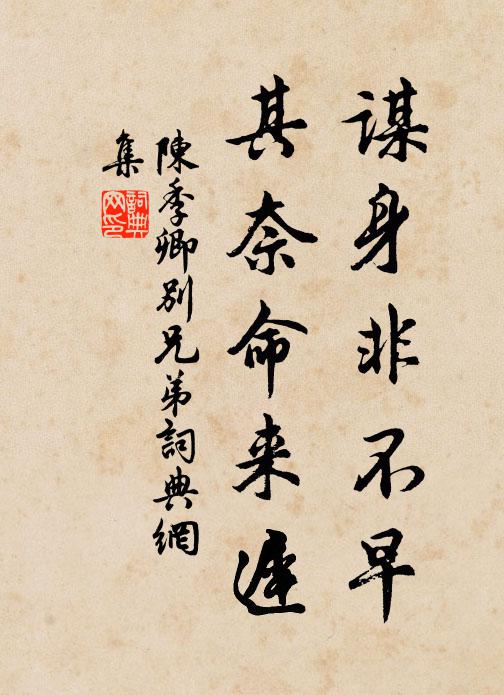 謀身非不早
其奈命来遲
陳季卿別兄弟詞典網
集
詞典网印